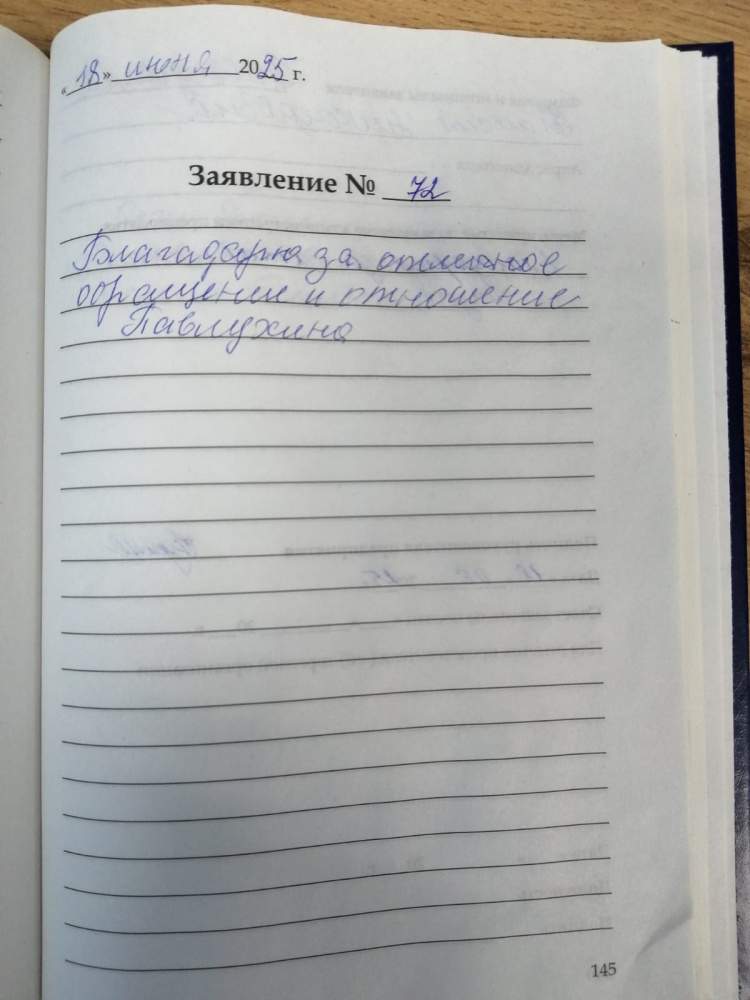 «18» июня 2025 г.
Заявление № 72
Благадарна за отличное
обращение и отношение
Павлухина
145